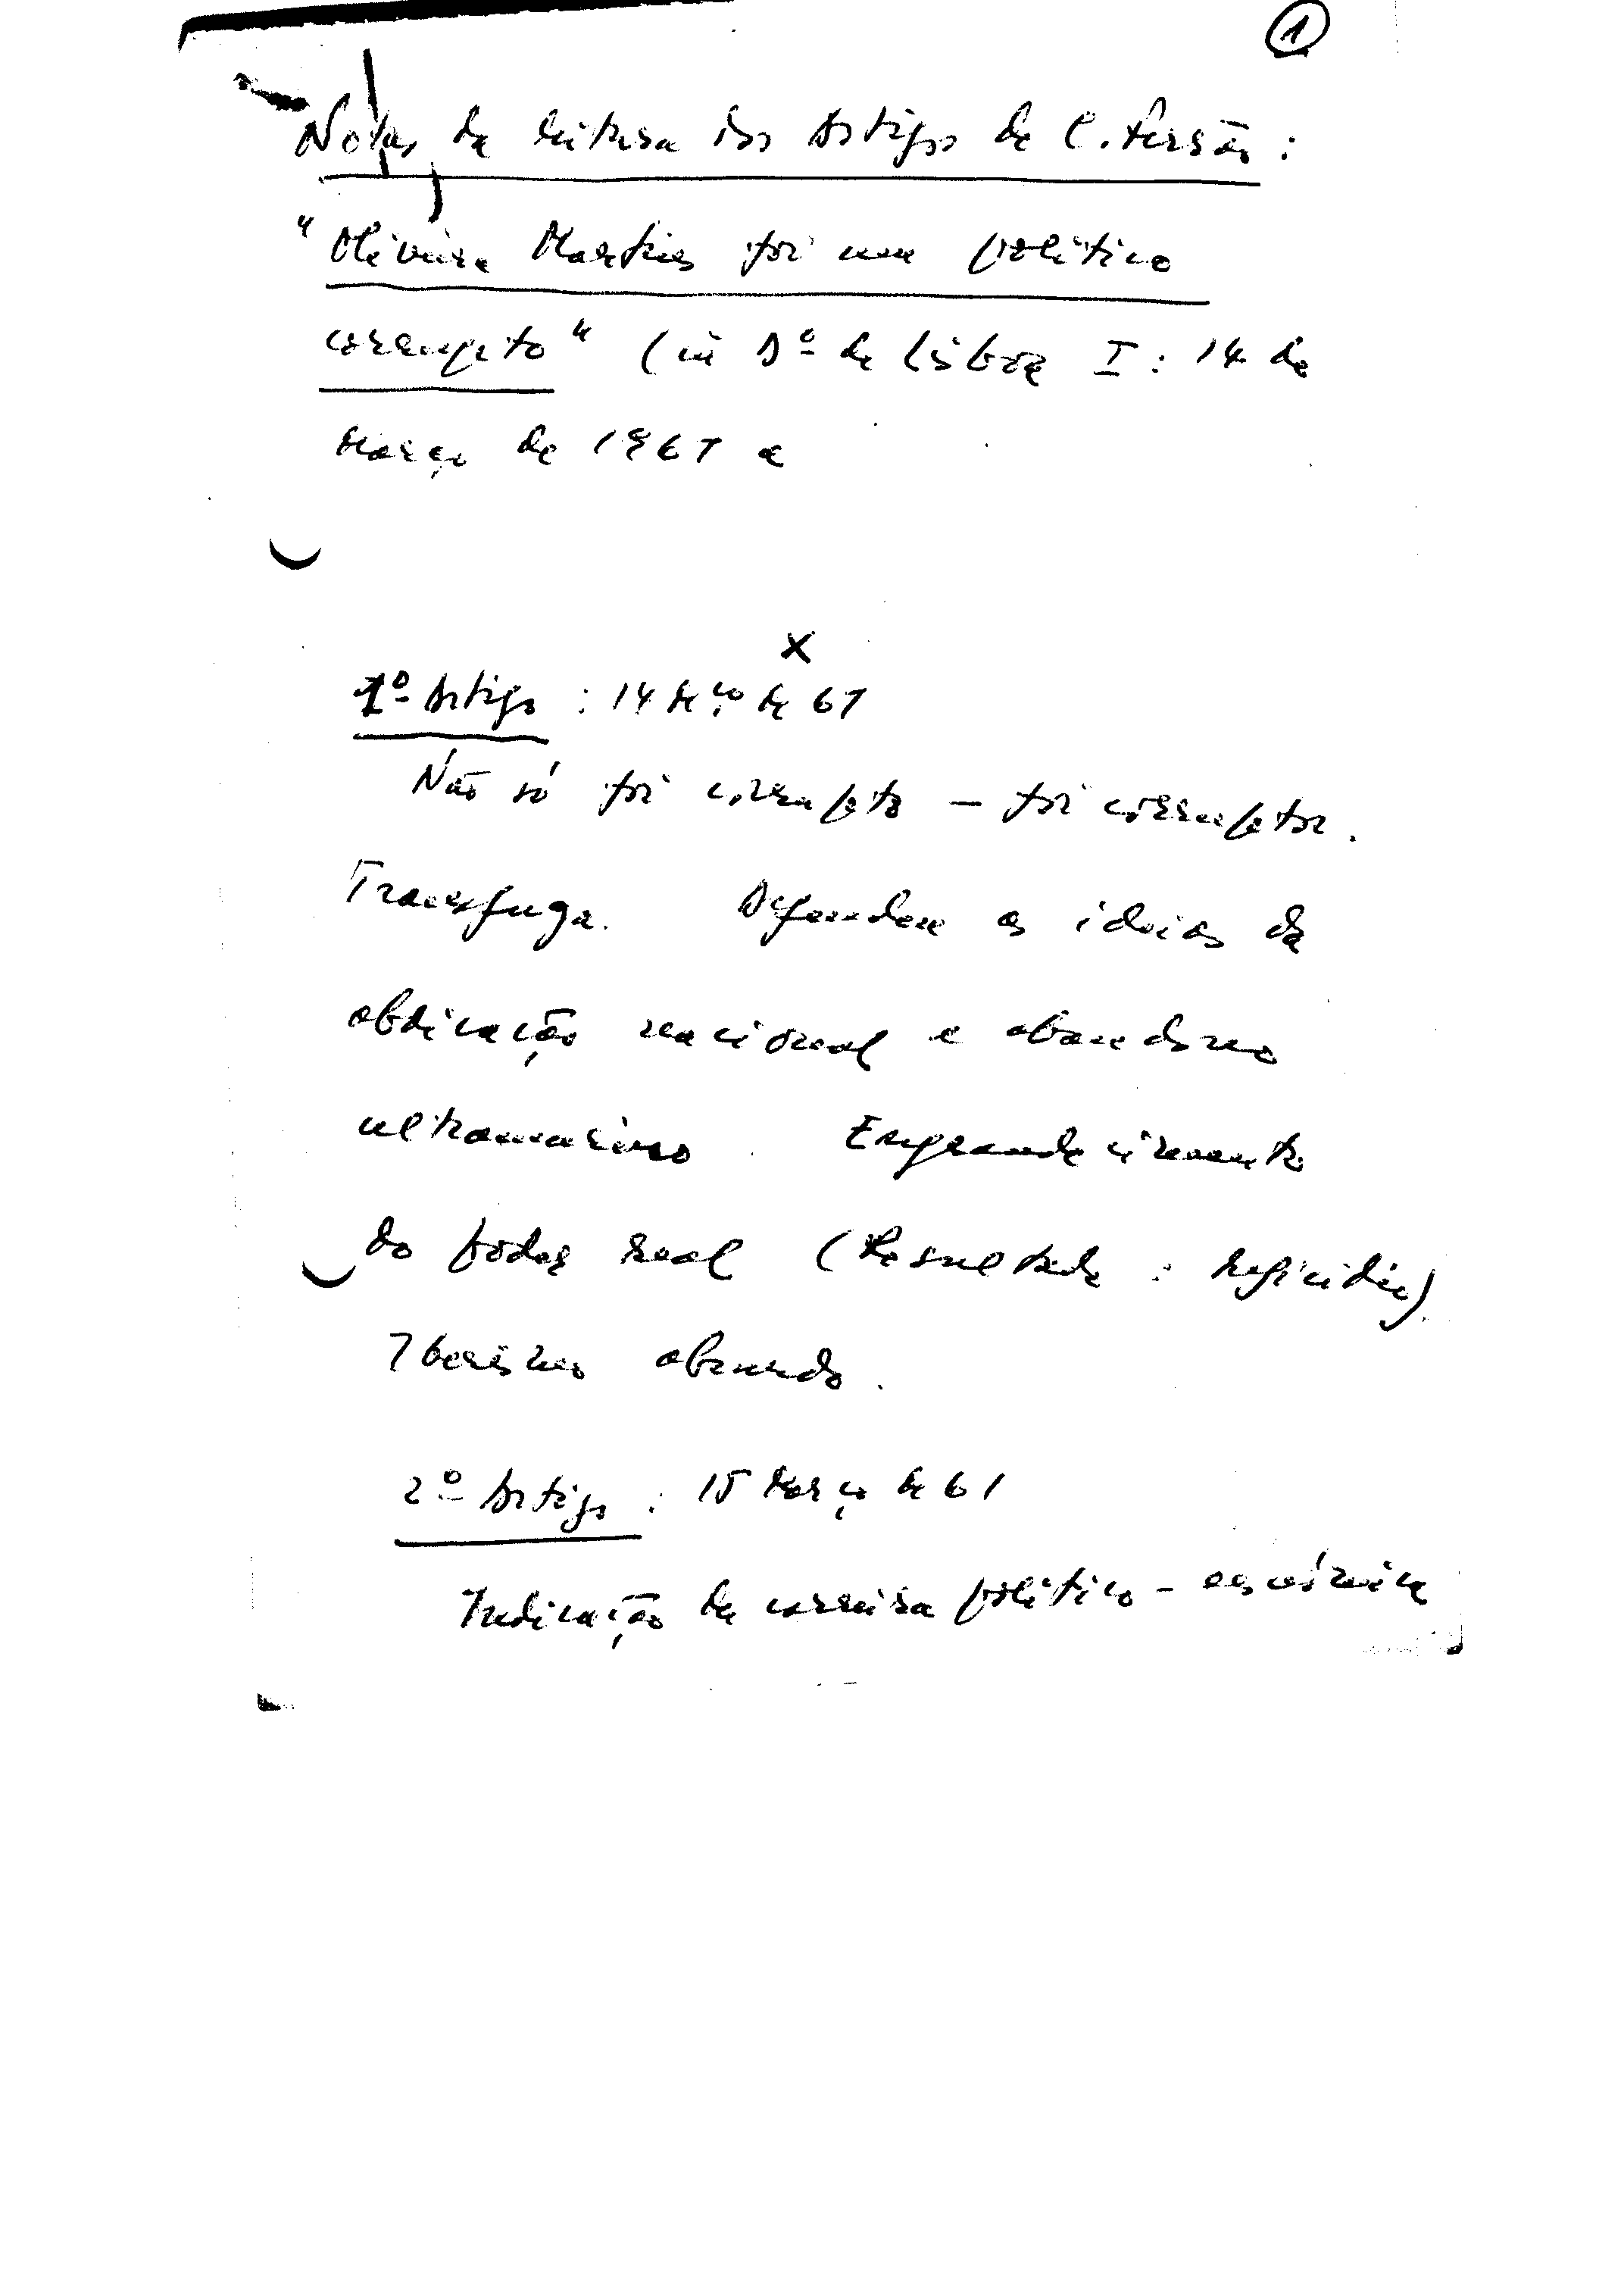 1
Notas de leitura dos Artigos de C. Fersão:
"Oliveira Martins foi um político
corrupto" (in Dº de Lisboa I: 14 de
Março de 1967 a
x
1º Artigo: 14 Mço de 67
Não só foi corrupto – foi corruptor.
Transfuga. Defendeu as ideias da
abdicação nacional e abandono
ultramarino. Engrandecimento
do poder real (Resultado: regicídio)
Iberismo absurdo.
2º Artigo: 15 Março de 61
Indicação da carreira político-económica